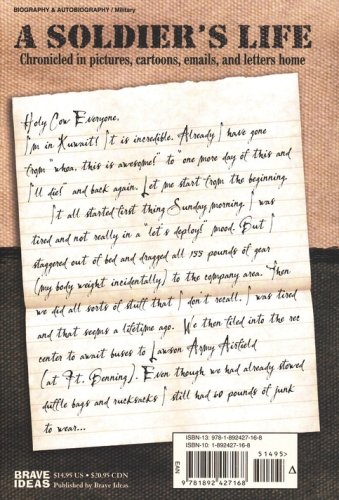 BIOGRAPHY & AUTOBIOGRAPHY / Military
A SOLDIER'S LIFE
Chronicled in pictures, cartoons, emails, and letters home
Holy Cow Everyone,
I'm in Kuwait! It is incredible. Already I have gone
from "whoa, this is awesome!" to "one more day of this and
I'll die!" and back again. Let me start from the beginning.
It all started first thing Sunday morning. I was
tired and not really in a "let's deploy!" mood. But I
staggered out of bed and dragged all 155 pounds of gear
(my body weight incidentally) to the company area. Then
we did all sorts of stuff that I don't recall. I was tired
and that seems a lifetime ago. We then filed into the rec
center to await buses to Lawson Army Airfield
(at Ft. Benning). Even though we had already stowed
duffle bags and rucksacks I still had 60 pounds of junk
to wear...
BRAVE
IDEAS
$14.95 US • $20.95 CDN
Published by Brave Ideas
ISBN-13: 978-1-892427-16-8
ISBN-10: 1-892427-16-8
51495
EAN
9 781892 427168